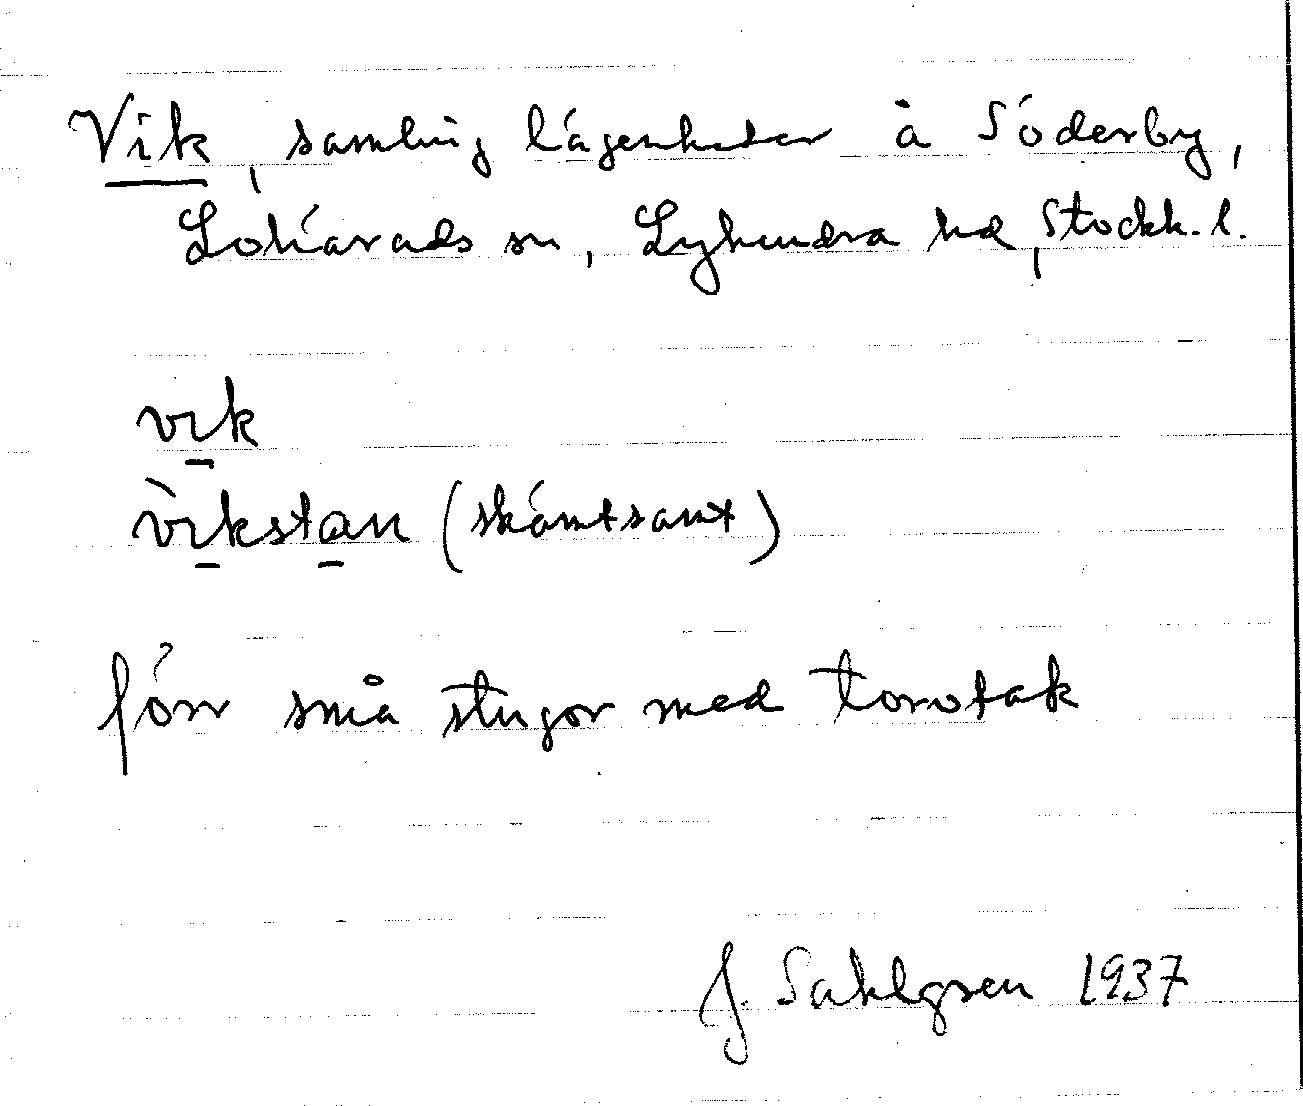 Vik, samling lägenheter å Söderby,
Lohärads sn, Lyhundra hd, Stockh. l.
vik
vìkstan (skämtsamt)
förr små stugor med torvtak
J. Sahlgren 1937